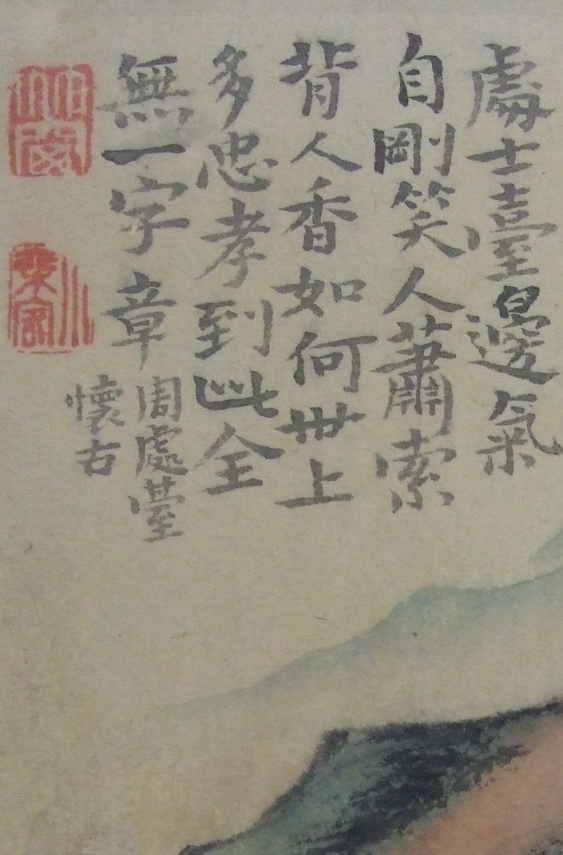 處士臺邊氣
自剛笑人蕭索
背人香如何世上
多忠孝到此全
無一字章
周處臺
懷古